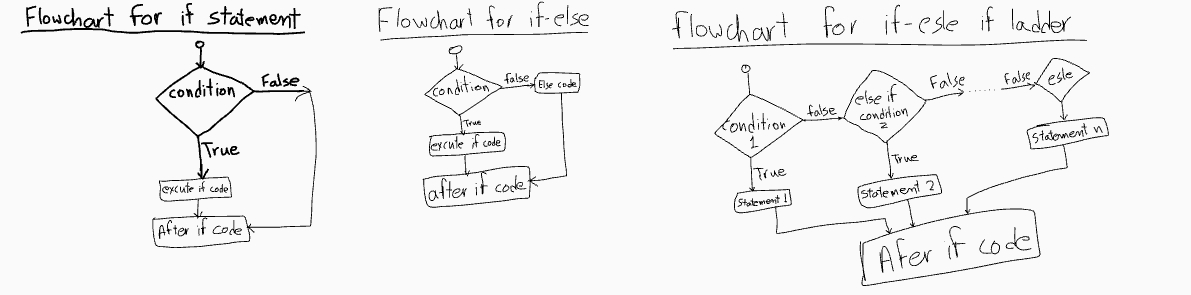 Flowchart for if statement
condition
False
True
excute if code
After if code
Flowchart for if-else
condition
false
Else code
True
excute if code
after if code
flowchart for if-esle if ladder
condition
1
false
else if
condition
2
False
False
esle
True
Statement 1
True
Statement 2
Statement n
Afer if code